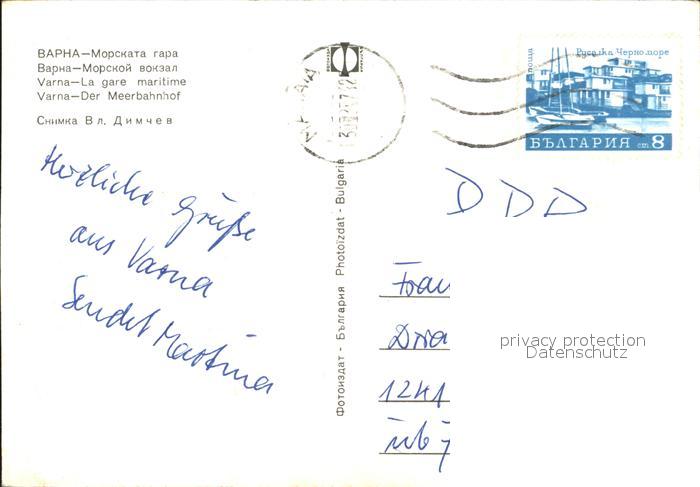 ВАРНА—Морската гара
Варна—Морской вокзал
Varna—La gare maritime
Varna—Der Meerbahnhof
Снимка Вл. Димчев
Herzliche Grüße
aus Varna
Sendet Martina
Фотоиздат - България Photoizdat - Bulgaria
поща Русалка Черноморе
БЪЛГАРИЯ ст 8
DDD
Frau
privacy protection
Datenschutz